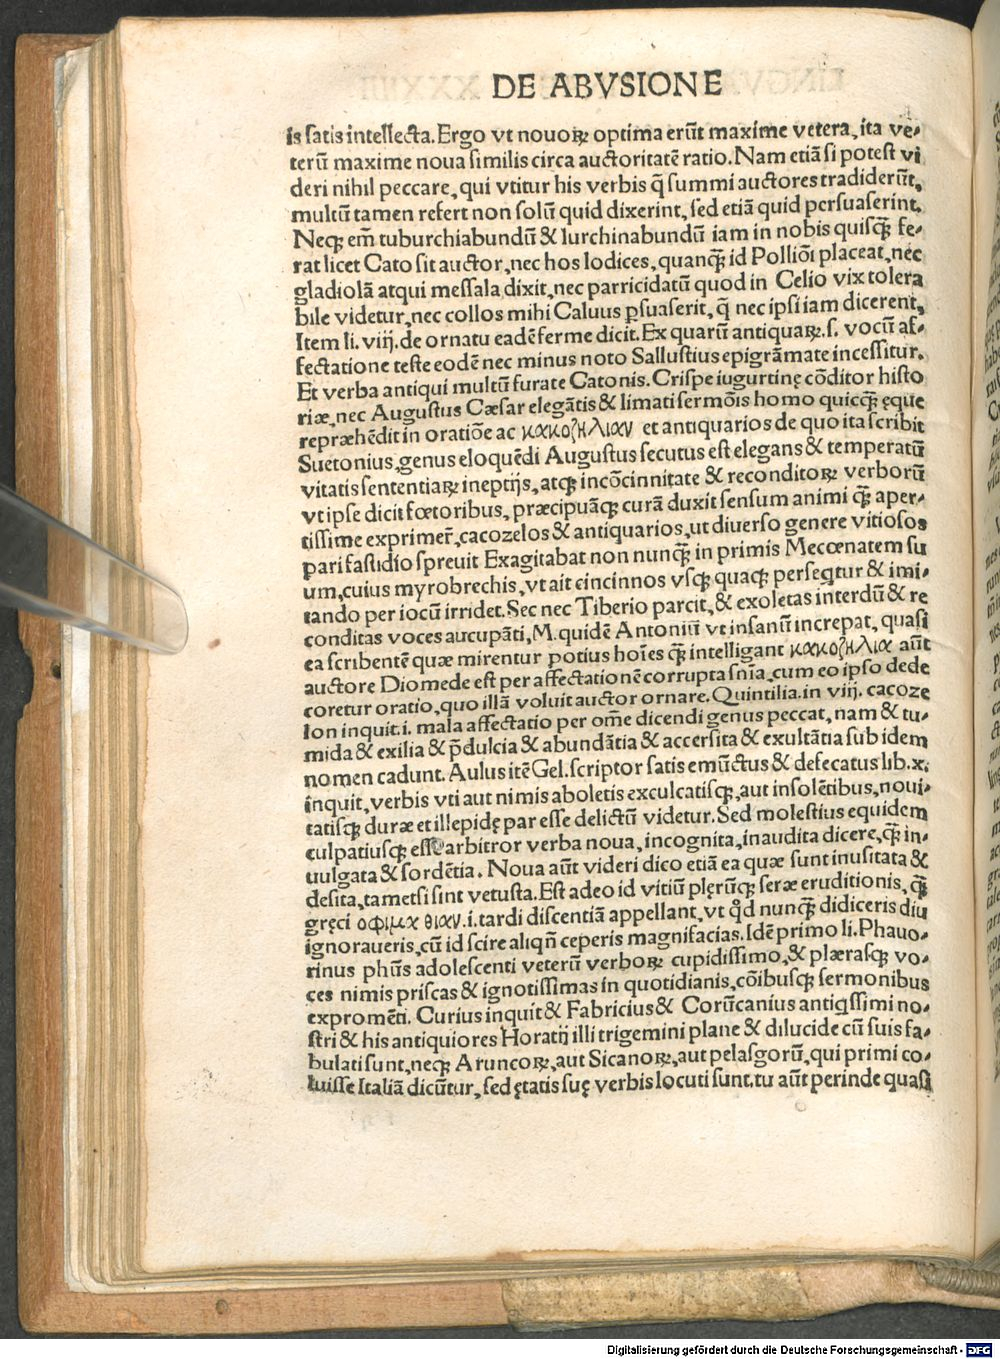 DE ABVSIONE
is satis intellecta. Ergo vt nouoꝝ optima erūt maxime vetera, ita ve-
terū maxime noua similis circa auctoritatē ratio. Nam etiā si potest vi
deri nihil peccare, qui vtitur his verbis q̄ summi auctores tradiderūt,
multū tamen refert non solū quid dixerint, sed etiā quid persuaserint.
Neqꝫ em̄ tuburchiabundū & lurchinabundū iam in nobis quisqꝫ̄ fe-
rat licet Cato sit auctor, nec hos lodices, quanqꝫ̄ id Pollioī placeat, nec
gladiolā atqui messala dixit, nec parricidatū quod in Celio vix tolera
bile videtur, nec collos mihi Caluus ꝑsuaserit, q̄ nec ipsi iam dicerent,
Item li. viij. de ornatu eadē ferme dicit. Ex quarū antiquaꝝ .s. vocū af-
fectatione teste eodē nec minus noto Sallustius epigrāmate incessitur.
Et verba antiqui multū furate Catonis. Crispe iugurtinę cōditor histo
riæ, nec Augustus Cæsar elegātis & limati sermōis homo quicqꝫ̄ ęque
repræhēdit in oratiōe ac κακοζηλιαν et antiquarios de quo ita scribit
Suetonius, genus eloquēdi Augustus secutus est elegans & temperatū
vitatis sententiaꝝ ineptijs, atqꝫ incōcinnitate & reconditoꝝ verborū
vt ipse dicit fœtoribus, præcipuāqꝫ curā duxit sensum animi qꝫ̄ aper-
tissime exprimer̄, cacozelos & antiquarios, ut diuerso genere vitiosos
pari fastidio spreuit Exagitabat non nunqꝫ̄ in primis Mecœnatem su
um, cuius myrobrechis, vt ait cincinnos vsqꝫ quaqꝫ perseqꞇtur & imi-
tando per iocū irridet. Sec nec Tiberio parcit, & exoletas interdū & re
conditas voces aucupāti, M. quidē Antoniū vt insanū increpat, quasi
ea scribentē quæ mirentur potius hoīes qꝫ̄ intelligant κακοζηλια aūt
auctore Diomede est per affectationē corrupta sn̄ia, cum eo ipso dede
coretur oratio, quo illā voluit auctor ornare. Quintilia. in viij. cacoze
lon inquit .i. mala affectatio per om̄e dicendi genus peccat, nam & tu-
mida & exilia & p̄dulcia & abundātia & accersita & exultātia sub idem
nomen cadunt. Aulus itē Gel. scriptor satis emūctus & defecatus lib. x.
inquit, verbis vti aut nimis aboletis exculcatisqꝫ, aut insolētibus, noui-
tatisqꝫ duræ et illepidę par esse delictū videtur. Sed molestius equidem
culpatiusqꝫ esse arbitror verba noua, incognita, inaudita dicere, qꝫ̄ in-
uulgata & sordētia. Noua aūt videri dico etiā ea quæ sunt inusitata &
desita, tametsi sint vetusta. Est adeo id vitiū plęrūqꝫ seræ eruditionis, qꝫ̄
gręci οφιμαχ θιαν .i. tardi discentiā appellant, vt qd̄ nunqꝫ̄ didiceris diu
ignoraueris, cū id scire aliqn̄ ceperis magnifacias. Idē primo li. Phauo-
rinus phūs adolescenti veterū verboꝝ cupidissimo, & plærasqꝫ vo-
ces nimis priscas & ignotissimas in quotidianis, cōibusqꝫ sermonibus
expromēti. Curius inquit & Fabricius & Corūcanius antiqssimi no-
stri & his antiquiores Horatij illi trigemini plane & dilucide cū suis fa-
bulati sunt, neqꝫ Aruncoꝝ, aut Sicanoꝝ, aut pelasgorū, qui primi co-
luisse Italiā dicūtur, sed ętatis suę verbis locuti sunt. tu aūt perinde quasi
Digitalisierung gefördert durch die Deutsche Forschungsgemeinschaft - DFG